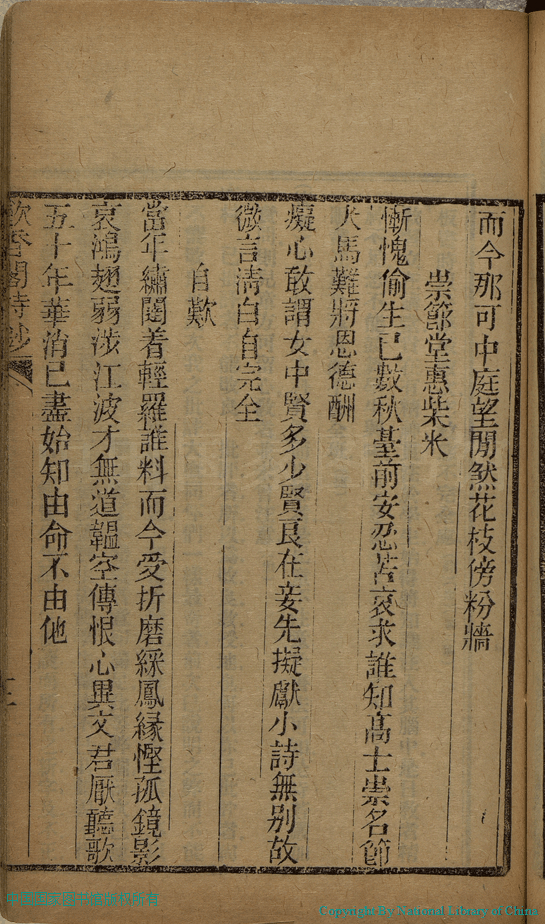 而今那可中庭望閒煞花枝傍粉牆
崇節堂惠柴米
慚愧偷生已數秋臺前安忍苦哀求誰知高士崇名節
犬馬難將恩德酬
癡心敢謂女中賢多少賢良在妾先擬獻小詩無別故
微言清白自完全
自歎
當年繡闥着輕羅誰料而今受折磨綵鳳緣慳孤鏡影
哀鴻翅弱涉江波才無道韞空傳恨心異文君厭聽歌
五十年華消已盡始知由命不由他
香閣詩鈔
Copyright By National Library of China